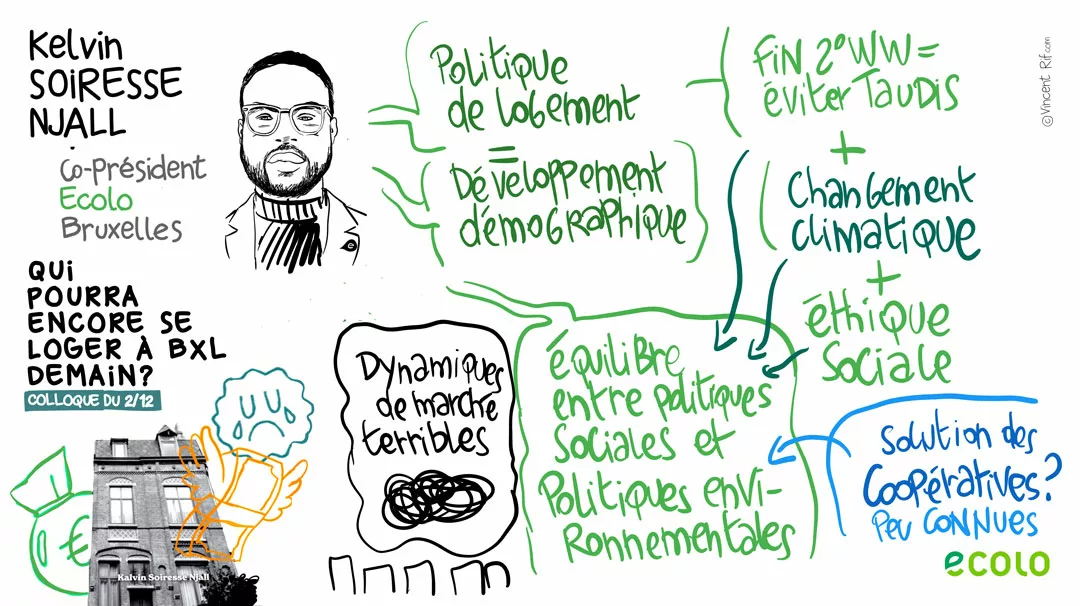 Kelvin
SOIRESSE
NJALL
Co-Président
Ecolo
Bruxelles
QUI
POURRA
ENCORE SE
LOGER À BXL
DEMAIN?
COLLOQUE DU 2/12
€
Kalvin Soiresse Njall
Politique
de logement
=
Développement
démographique
FIN 2° WW =
éviter TAUDIS
+
Changement
climatique
+
éthique
Sociale
Dynamiques
de marché
terribles
équilibre
entre politiques
Sociales et
Politiques envi-
Ronnementales
Solution des
Coopératives?
Peu CONNUES
ecolo
©Vincent Rif.com